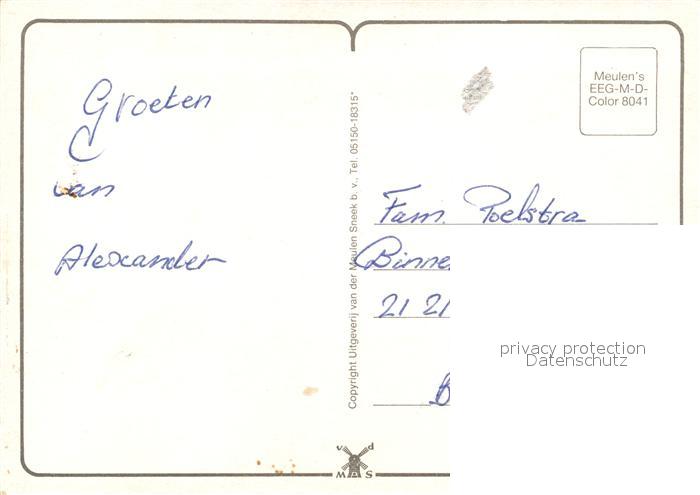 Groeten
van
Alexander
Copyright Uitgeverij van der Meulen Sneek b.v., Tel. 05150-18315*
Meulen's
EEG-M-D-
Color 8041
Fam. Poelstra
Binne
21 21
B
privacy protection
Datenschutz
v d
M S